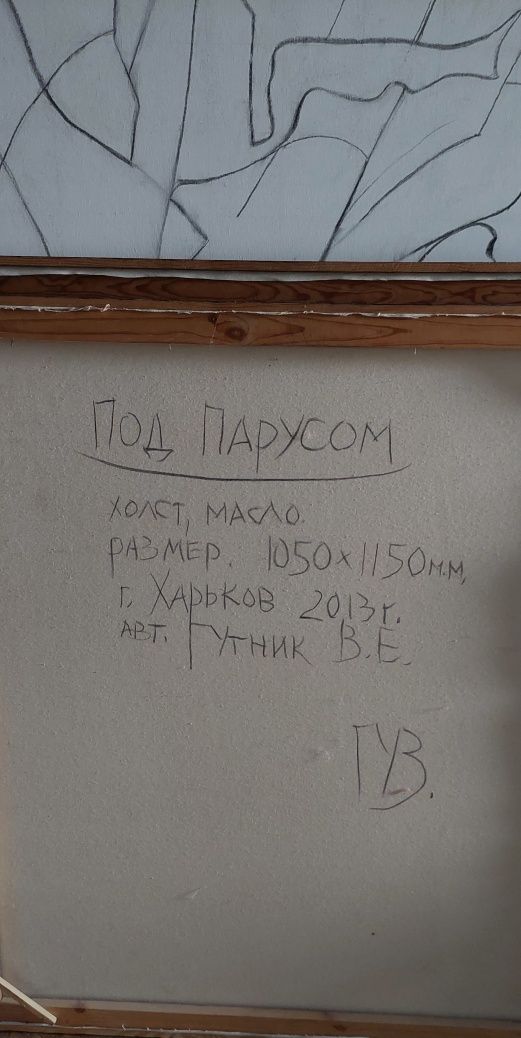 ПОД ПАРУСОМ
ХОЛСТ, МАСЛО.
РАЗМЕР. 1050х1150м.м,
г. ХАРЬКОВ 2013г.
АВТ. ГУТНИК В.Е.
ГУВ.